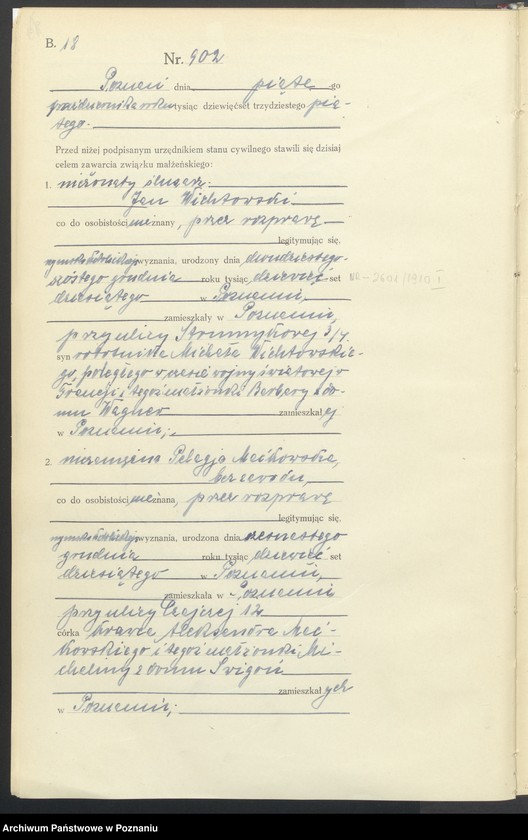 B. 18
Nr. 902
Poznań dnia piąte-go
października roku tysiąc dziewięćset trzydziestego pią-
tego.
Przed niżej podpisanym urzędnikiem stanu cywilnego stawili się dzisiaj
celem zawarcia związku małżeńskiego:
1. nieżonaty ślusarz
Jan Wichtowski
co do osobistości nieznany, przez rozprawę
legitymując się,
rzymskokatolickiego wyznania, urodzony dnia dwudziestego
szóstego grudnia roku tysiąc dziewięć set
dziesiątego w Poznaniu, NR-2601/1910 I
zamieszkały w Poznaniu,
przy ulicy Strumykowej 3/4.
syn robotnika Michała Wichtowskie-
go, poległego w czasie wojny światowej w
Francji i tegoż małżonki Barbary z do-
mu Wagner zamieszkałej
w Poznaniu;
2. niezamężna Pelagja Maćkowska,
bez zawodu,
co do osobistości nieznana, przez rozprawę
legitymując się,
rzymskokatolickiego wyznania, urodzona dnia
grudnia roku tysiąc dziewięć set
dziesiątego w Poznaniu,
zamieszkała w Poznaniu
przy ulicy Czajczej 12
córka krawca Aleksandra Mać-
kowskiego i tegoż małżonki Mi-
chaliny z domu Świgoń
zamieszkałych
w Poznaniu;
Archiwum Państwowe w Poznaniu